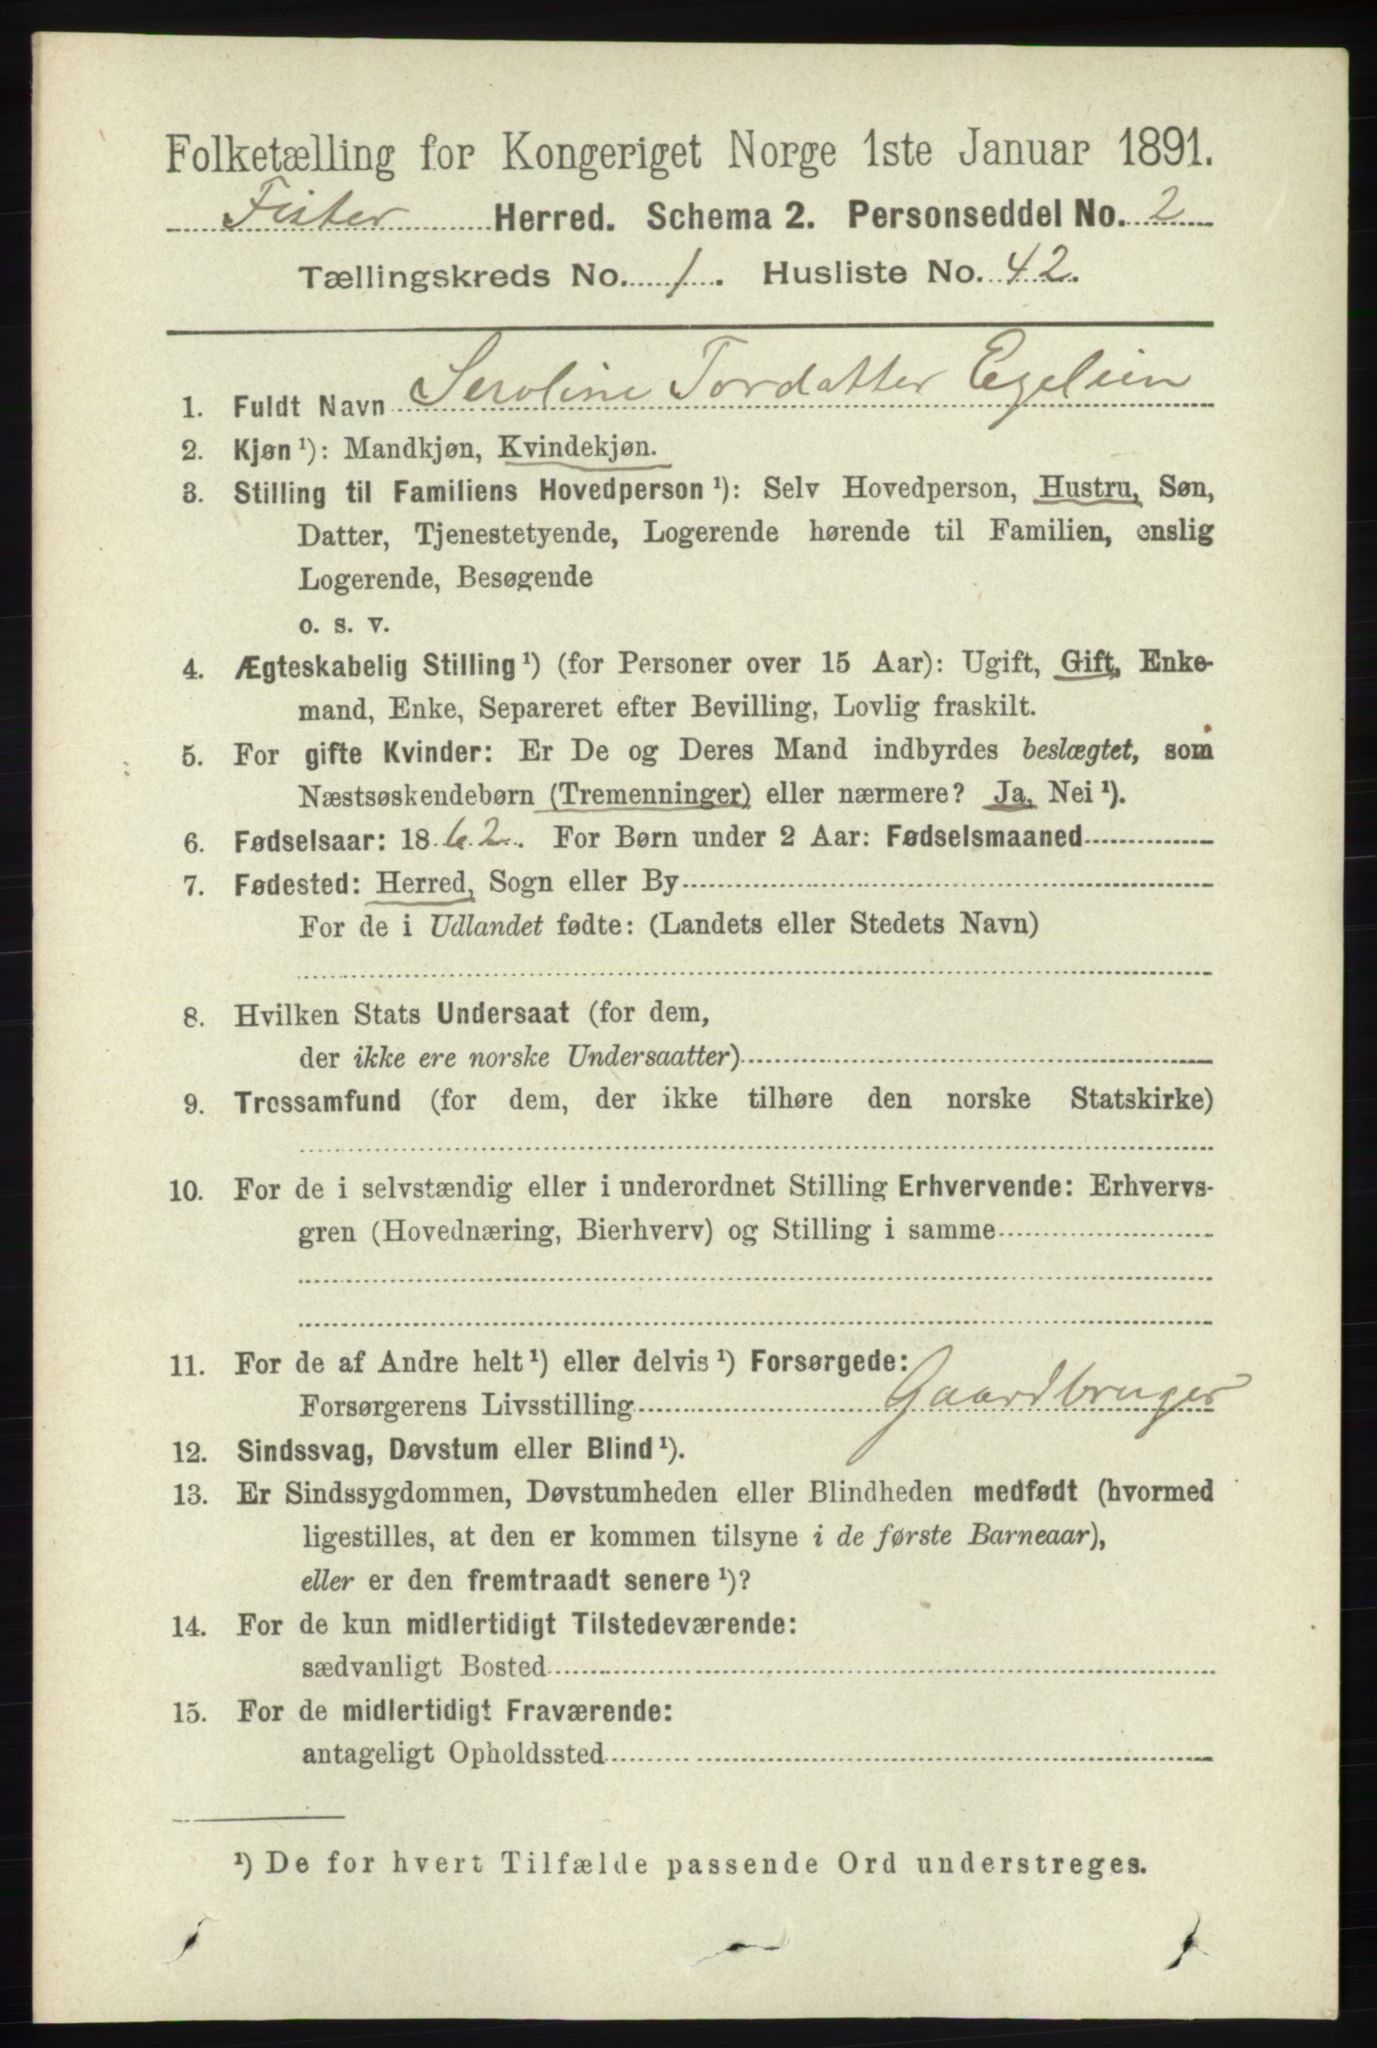 Folketælling for Kongeriget Norge 1ste Januar 1891.
Fister Herred. Schema 2. Personseddel No. 2
Tællingskreds No. 1. Husliste No. 42.
1. Fuldt Navn Seroline Tordatter Egelien
2. Kjøn ¹): Mandkjøn, Kvindekjøn.
3. Stilling til Familiens Hovedperson ¹): Selv Hovedperson, Hustru, Søn,
Datter, Tjenestetyende, Logerende hørende til Familien, enslig
Logerende, Besøgende
o. s. v.
4. Ægteskabelig Stilling ¹) (for Personer over 15 Aar): Ugift, Gift, Enke-
mand, Enke, Separeret efter Bevilling, Lovlig fraskilt.
5. For gifte Kvinder: Er De og Deres Mand indbyrdes beslægtet, som
Næstsøskendebørn (Tremenninger) eller nærmere? Ja, Nei ¹).
6. Fødselsaar: 1862. For Børn under 2 Aar: Fødselsmaaned
7. Fødested: Herred, Sogn eller By
For de i Udlandet fødte: (Landets eller Stedets Navn)
8. Hvilken Stats Undersaat (for dem,
der ikke ere norske Undersaatter)
9. Trossamfund (for dem, der ikke tilhøre den norske Statskirke)
10. For de i selvstændig eller i underordnet Stilling Erhvervende: Erhvervs-
gren (Hovednæring, Bierhverv) og Stilling i samme
11. For de af Andre helt ¹) eller delvis ¹) Forsørgede:
Forsørgerens Livsstilling Gaardbruger
12. Sindssvag, Døvstum eller Blind ¹).
13. Er Sindssygdommen, Døvstumheden eller Blindheden medfødt (hvormed
ligestilles, at den er kommen tilsyne i de første Barneaar),
eller er den fremtraadt senere ¹)?
14. For de kun midlertidigt Tilstedeværende:
sædvanligt Bosted
15. For de midlertidigt Fraværende:
antageligt Opholdssted
¹) De for hvert Tilfælde passende Ord understreges.